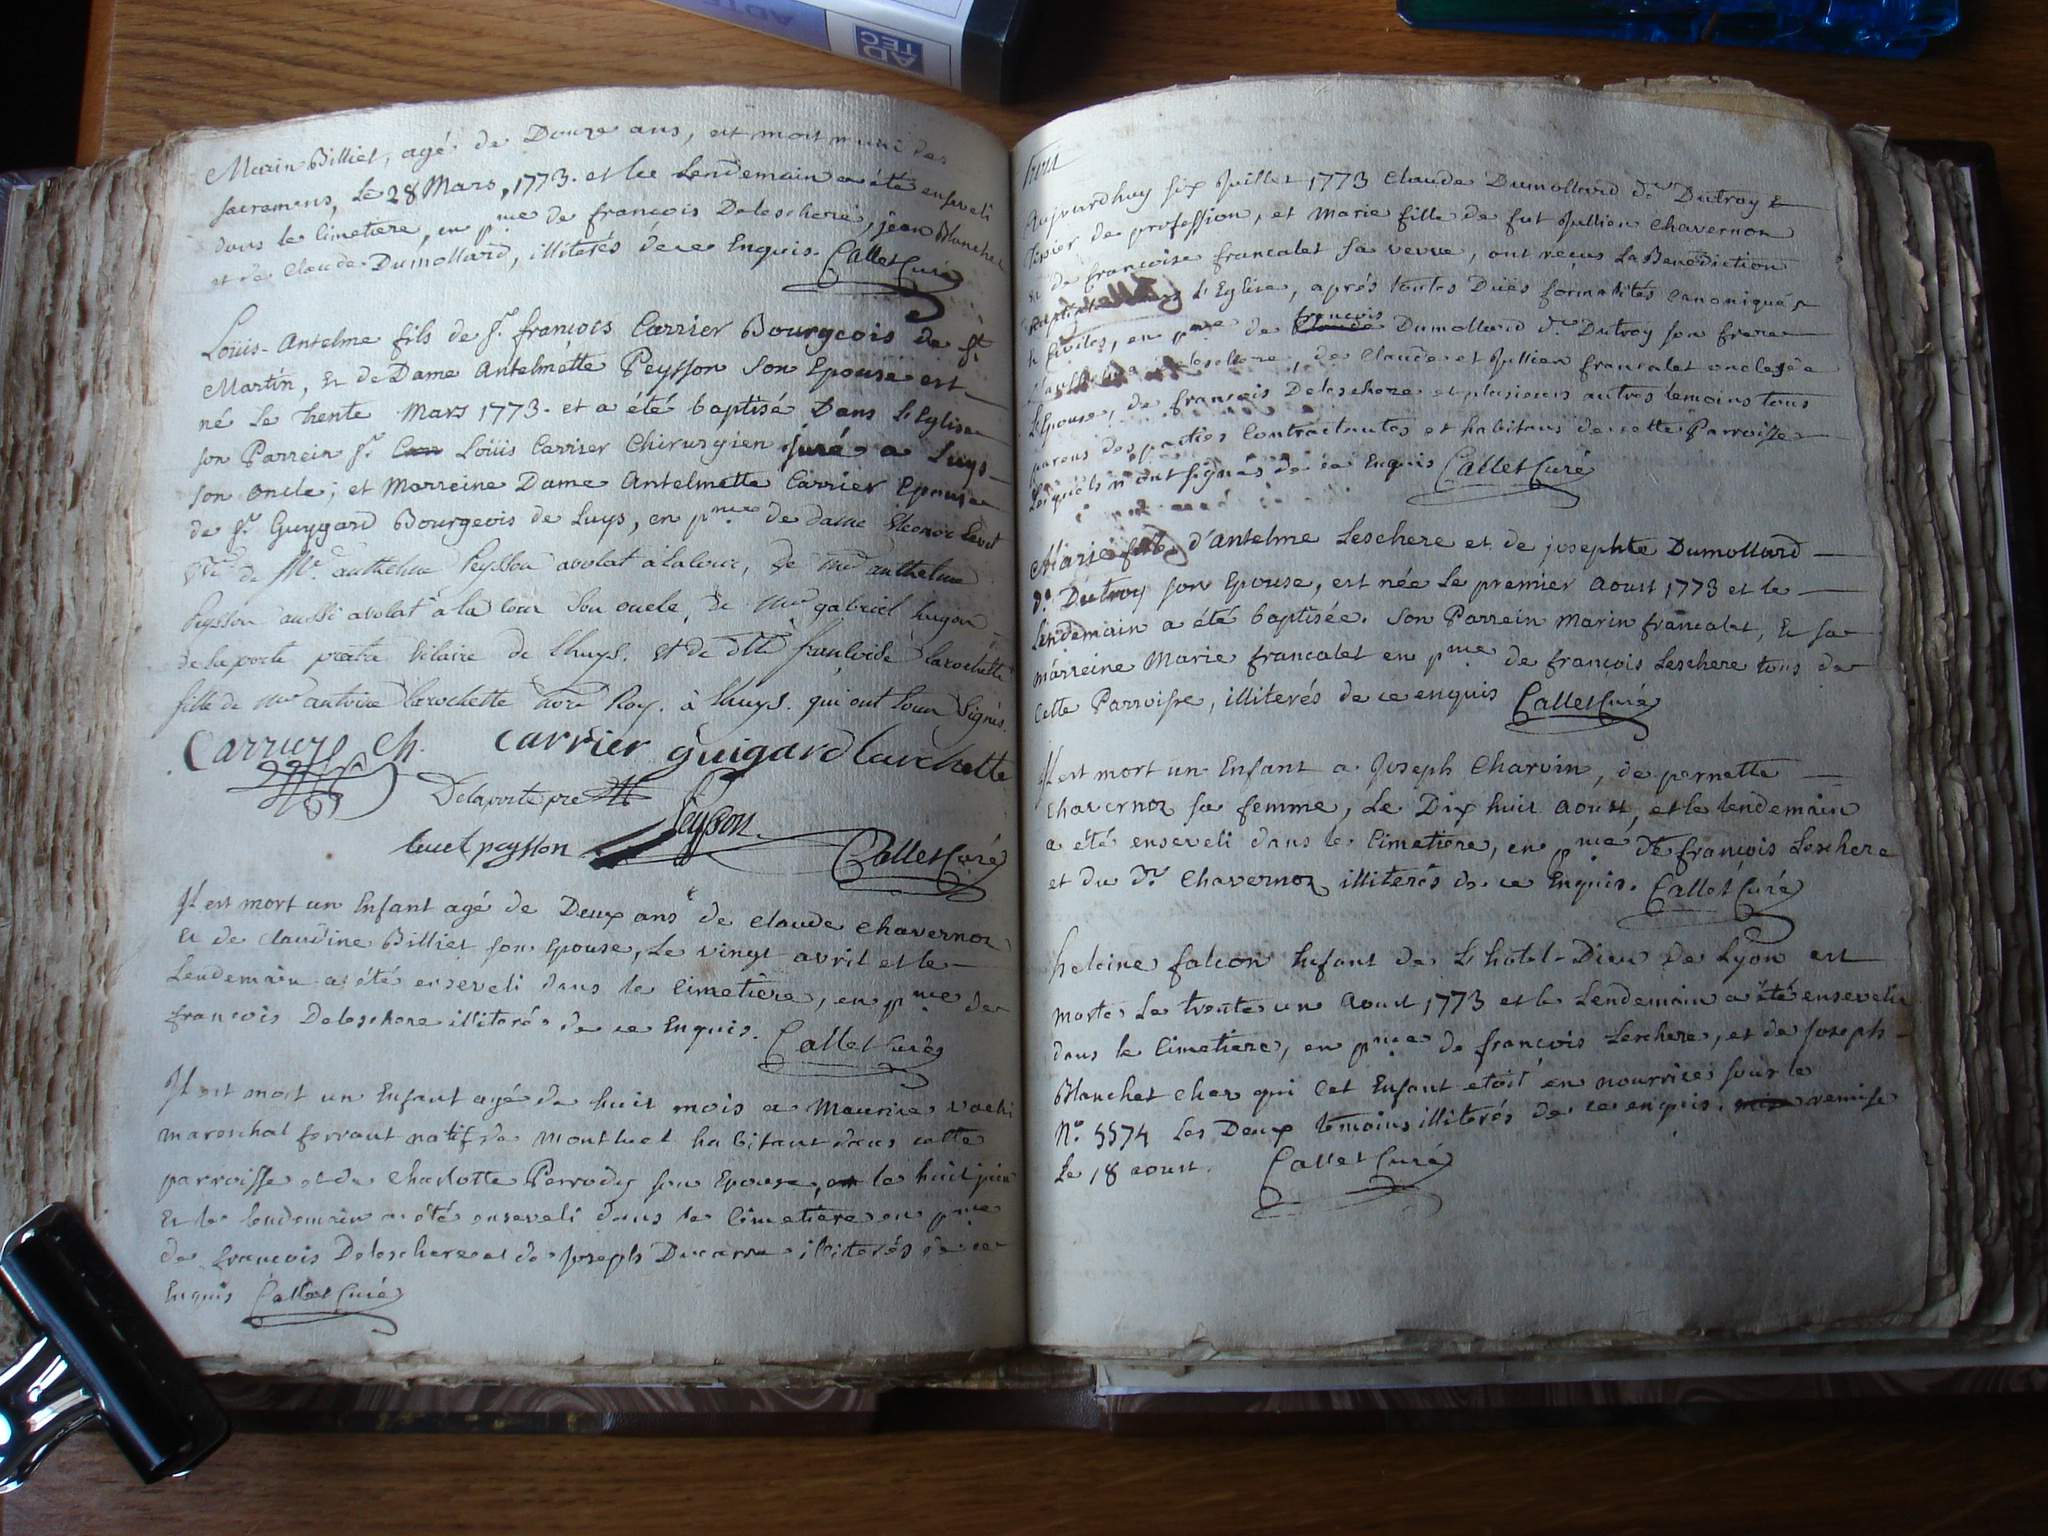 AD
TEC
Marin Billiet, agé de Douze ans, est mort muni des
sacremens, Le 28 Mars, 1773. et le Lendemain a été enseveli
dans le Cimetiere, en p.nce de françois Deleschere, jean Blanchet
et de Claude Dumollard, illiterés de ce Enquis. Callet Curé
Loüis-Antelme fils de S.r françois Carrier Bourgeois de S.t
Martin, Et de Dame Antelmette Peysson Son Epouse est
né Le trente Mars 1773. et a été baptisé Dans L'Eglise
son Parrein S.r Loüis Carrier Chirurgien juré a Luys
son oncle; et Marreine Dame Antelmette Carrier Epouse
de S.r Guygard Bourgeois de Luys, en p.nce de dame Eleonor Levet
de M.r anthelme Peysson avocat à la cour, de m.re anthelme
Peysson aussi avocat à la cour son oncle, de m.re gabriel hugon
de la porte prêtre vicaire de Lhuys. Et de dlle françoise Larochette
fille de m.re antoine Larochette Roy. à Lhuys. qui ont tous signés.
Carrier Ch. Carrier guigard Larochette
Delaporte pre Peysson
levet peysson Callet Curé
Il est mort un Enfant agé de Deux ans de Claude Chavernoz
Et de Claudine Billiet son Epouse, Le vingt avril et le
Lendemain a été enseveli dans le Cimetière, en p.nce de
françois Deleschere illiterés de ce Enquis. Callet Curé
Il est mort un Enfant agé de huit mois a Maurice
mareschal ferrant natif de Montluel habitant dans cette
parroisse et de Charlotte Perrody son Epouse, le huit juin
Et le lendemain a été enseveli dans le Cimetiere en p.nce
de françois Deleschere et de Joseph Ducarre illiterés de ce
Enquis Callet Curé
Aujourdhuy six Juillet 1773 Claude Dumollard d.t Dutroy
Tissier de profession, et Marie fille de fut Jullien Chavernoz
Et de françoise francalet sa veuve, ont reçus La Benediction
L'Eglise, aprés toutes Duës formalités Canoniques
Civiles, en p.nce de françois Claude Dumollard d.t Dutroy son frere
de Claude et Jullien francalet oncle de
L'Epouse, de françois Deleschere et plusieurs autres temoins tous
parens des parties Contractantes et habitans de cette Parroisse
Lesquels n'ont signés de ce Enquis Callet Curé
Marie d'Antelme Leschere et de josephte Dumollard
d.t Dutroy son Epouse, est née Le premier Aoust 1773 et le
Lendemain a été baptisée. Son Parrein Marin francalet, Et sa
marreine Marie francalet en p.nce de françois Leschere tous de
Cette Parroisse, illiterés de ce enquis Callet Curé
Il est mort un Enfant a Joseph Charvin, de pernette
Chavernoz sa femme, Le Dix huit aoust, et le lendemain
a été enseveli dans le Cimetière, en p.nce de françois Leschere
et du d.t Chavernoz illiterés de ce Enquis. Callet Curé
heleine falcon Enfant de L'hotel-Dieu de Lyon est
morte Le trente un Aoust 1773 et le Lendemain a été ensevelie
dans le Cimetiere, en p.nce de françois Leschere, et de Joseph
Blanchet Chez qui Cet Enfant etoit en nourrice sous le
N.o 5574 Les Deux temoins illiterés de ce enquis. remise
Le 18 aoust. Callet Curé